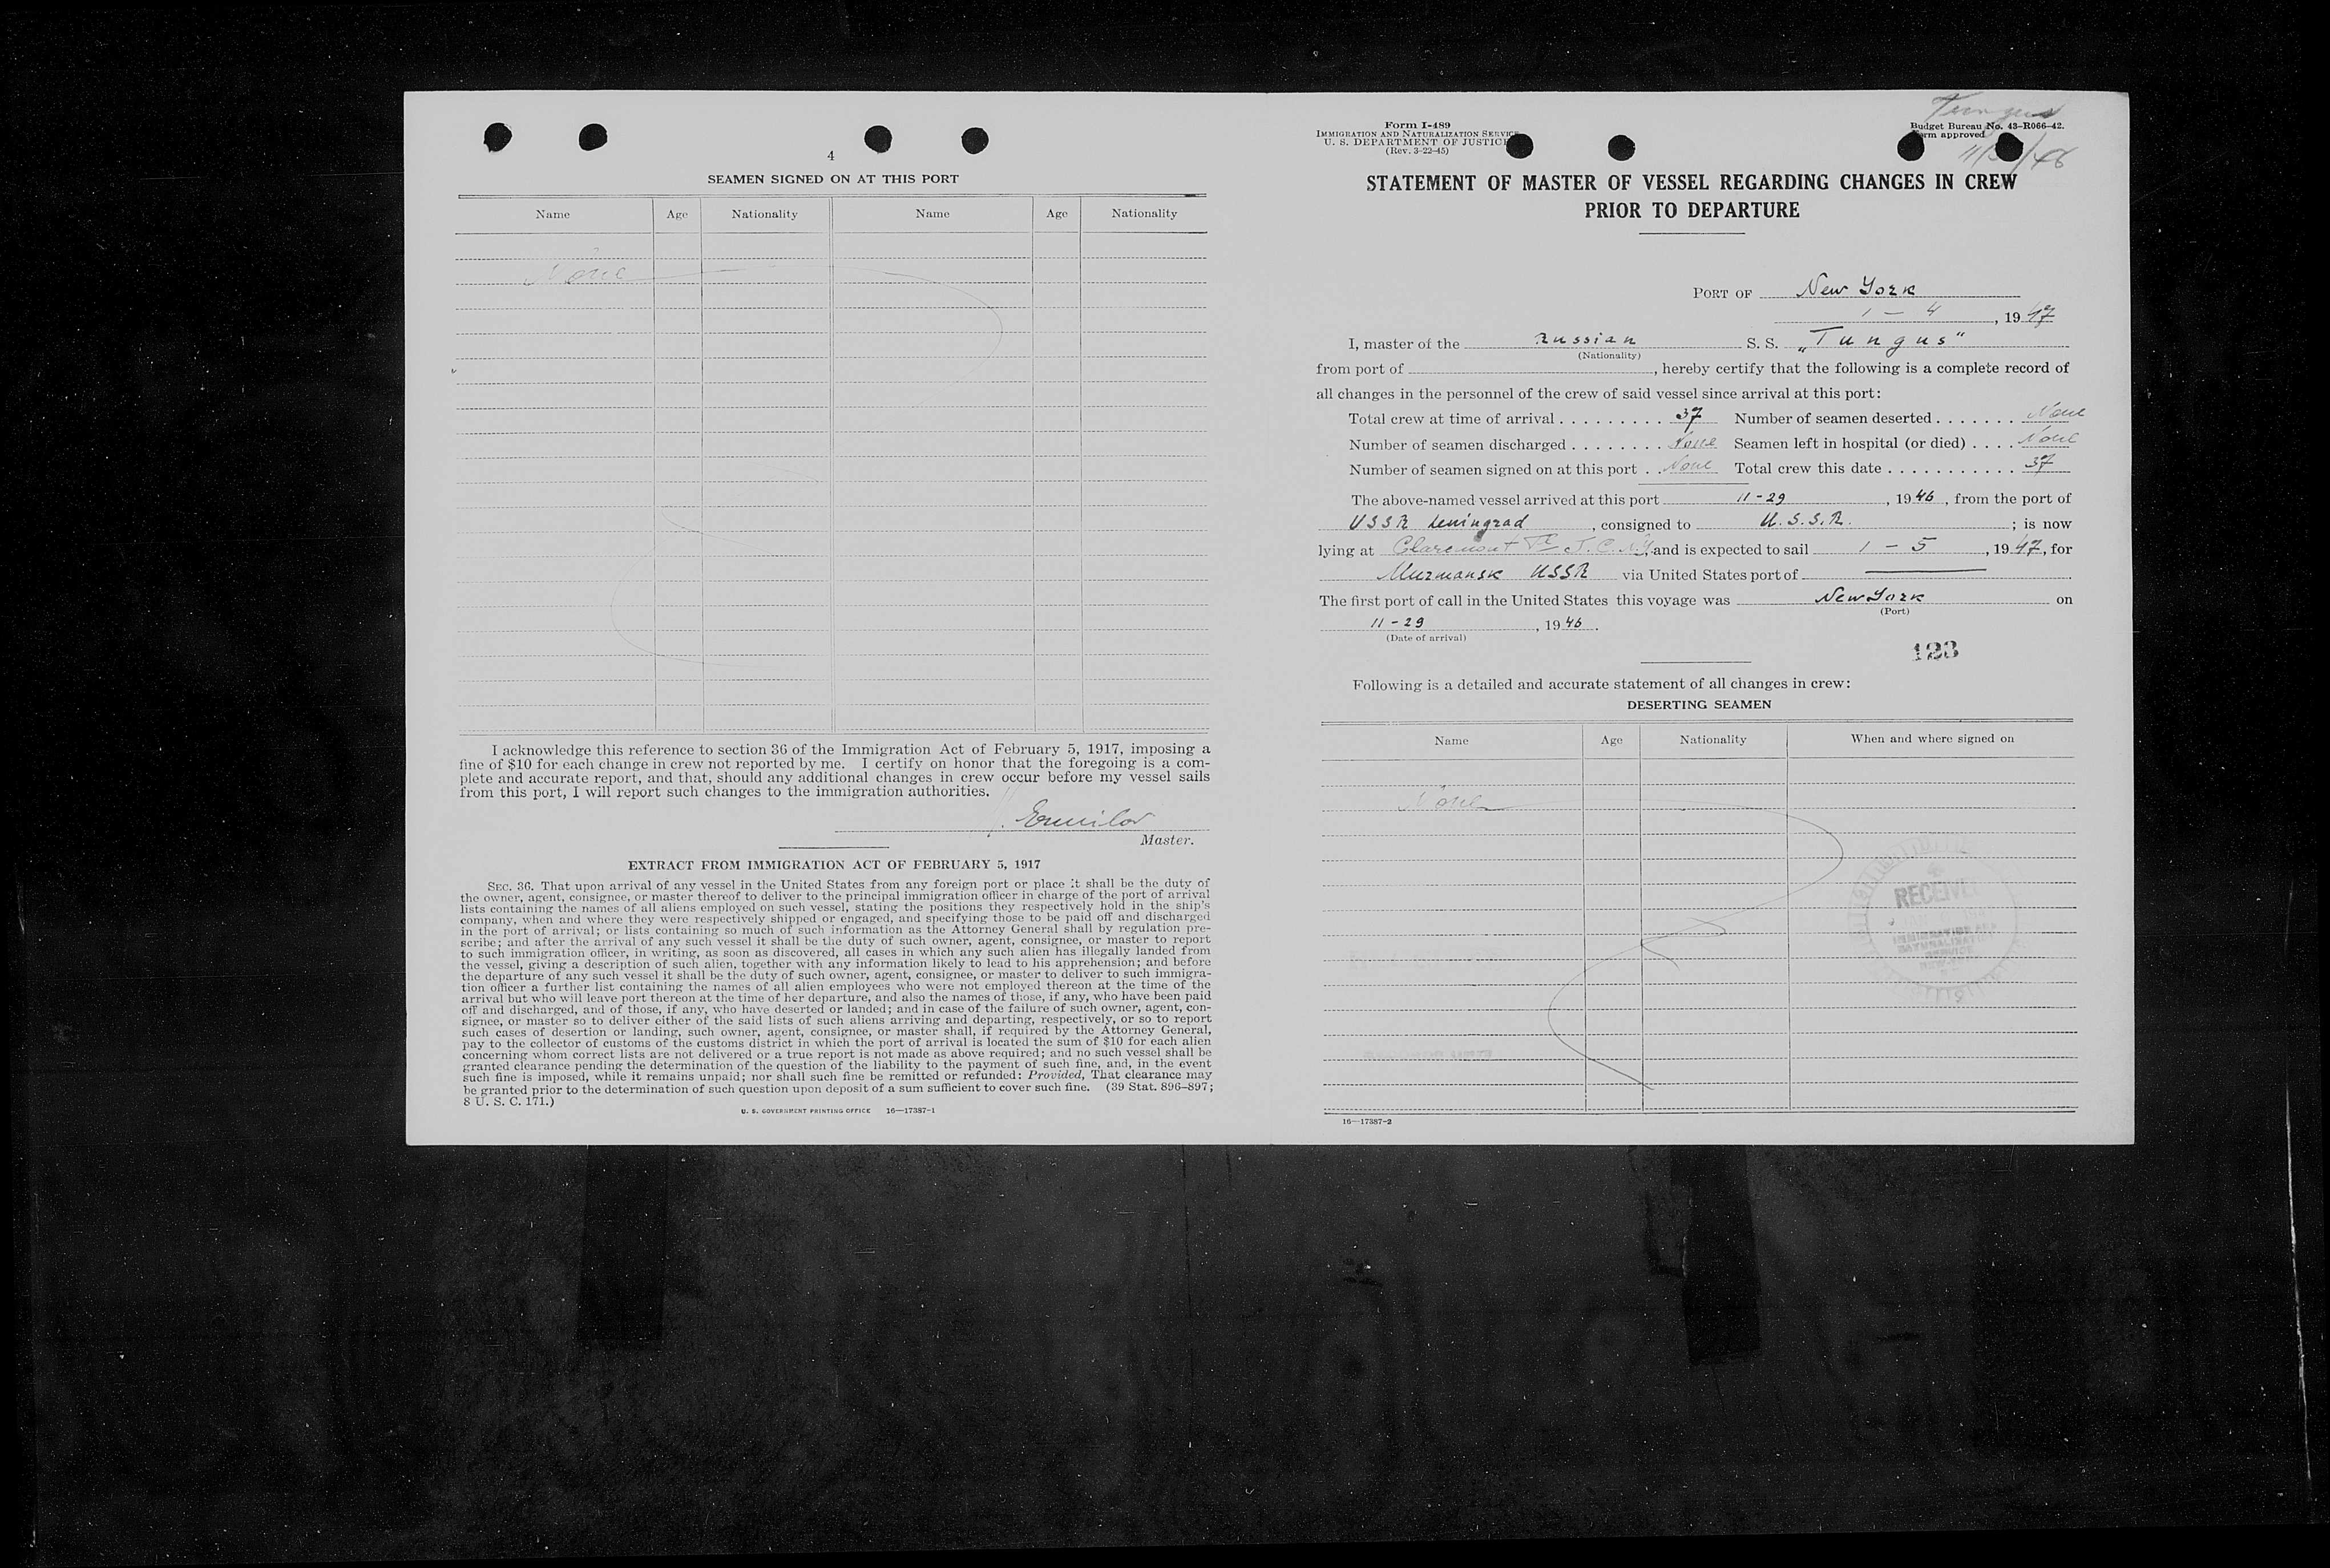 4
SEAMEN SIGNED ON AT THIS PORT
Name Age Nationality Name Age Nationality
None
I acknowledge this reference to section 36 of the Immigration Act of February 5, 1917, imposing a
fine of $10 for each change in crew not reported by me. I certify on honor that the foregoing is a com-
plete and accurate report, and that, should any additional changes in crew occur before my vessel sails
from this port, I will report such changes to the immigration authorities.
Master.
EXTRACT FROM IMMIGRATION ACT OF FEBRUARY 5, 1917
SEC. 36. That upon arrival of any vessel in the United States from any foreign port or place it shall be the duty of
the owner, agent, consignee, or master thereof to deliver to the principal immigration officer in charge of the port of arrival
lists containing the names of all aliens employed on such vessel, stating the positions they respectively hold in the ship's
company, when and where they were respectively shipped or engaged, and specifying those to be paid off and discharged
in the port of arrival; or lists containing so much of such information as the Attorney General shall by regulation pre-
scribe; and after the arrival of any such vessel it shall be the duty of such owner, agent, consignee, or master to report
to such immigration officer, in writing, as soon as discovered, all cases in which any such alien has illegally landed from
the vessel, giving a description of such alien, together with any information likely to lead to his apprehension; and before
the departure of any such vessel it shall be the duty of such owner, agent, consignee, or master to deliver to such immigra-
tion officer a further list containing the names of all alien employees who were not employed thereon at the time of the
arrival but who will leave port thereon at the time of her departure, and also the names of those, if any, who have been paid
off and discharged, and of those, if any, who have deserted or landed; and in case of the failure of such owner, agent, con-
signee, or master so to deliver either of the said lists of such aliens arriving and departing, respectively, or so to report
such cases of desertion or landing, such owner, agent, consignee, or master shall, if required by the Attorney General,
pay to the collector of customs of the customs district in which the port of arrival is located the sum of $10 for each alien
concerning whom correct lists are not delivered or a true report is not made as above required; and no such vessel shall be
granted clearance pending the determination of the question of the liability to the payment of such fine, and, in the event
such fine is imposed, while it remains unpaid; nor shall such fine be remitted or refunded: Provided, That clearance may
be granted prior to the determination of such question upon deposit of a sum sufficient to cover such fine. (39 Stat. 896–897;
8 U. S. C. 171.)
U. S. GOVERNMENT PRINTING OFFICE 16—17387-1
Tungus
Form I-489
IMMIGRATION AND NATURALIZATION SERVICE
U. S. DEPARTMENT OF JUSTICE
(Rev. 3-22-45)
Budget Bureau No. 43-R066-42.
Form approved
STATEMENT OF MASTER OF VESSEL REGARDING CHANGES IN CREW
PRIOR TO DEPARTURE
PORT OF New York
1 – 4, 1947
I, master of the Russian S. S. „Tungus"
(Nationality)
from port of , hereby certify that the following is a complete record of
all changes in the personnel of the crew of said vessel since arrival at this port:
Total crew at time of arrival . . . . . . . . . 37 Number of seamen deserted . . . . . . . None
Number of seamen discharged . . . . . . . . None Seamen left in hospital (or died) . . . . None
Number of seamen signed on at this port . . None Total crew this date . . . . . . . . . . . 37
The above-named vessel arrived at this port 11-29, 1946, from the port of
USSR Leningrad, consigned to U.S.S.R. ; is now
lying at Claremont and is expected to sail 1 – 5, 1947, for
Murmansk USSR via United States port of
The first port of call in the United States this voyage was New York on
(Port)
11-29, 1946.
(Date of arrival)
123
Following is a detailed and accurate statement of all changes in crew:
DESERTING SEAMEN
Name Age Nationality When and where signed on
None
RECEIVED
IMMIGRATION AND
NATURALIZATION
SERVICE
16—17387-2